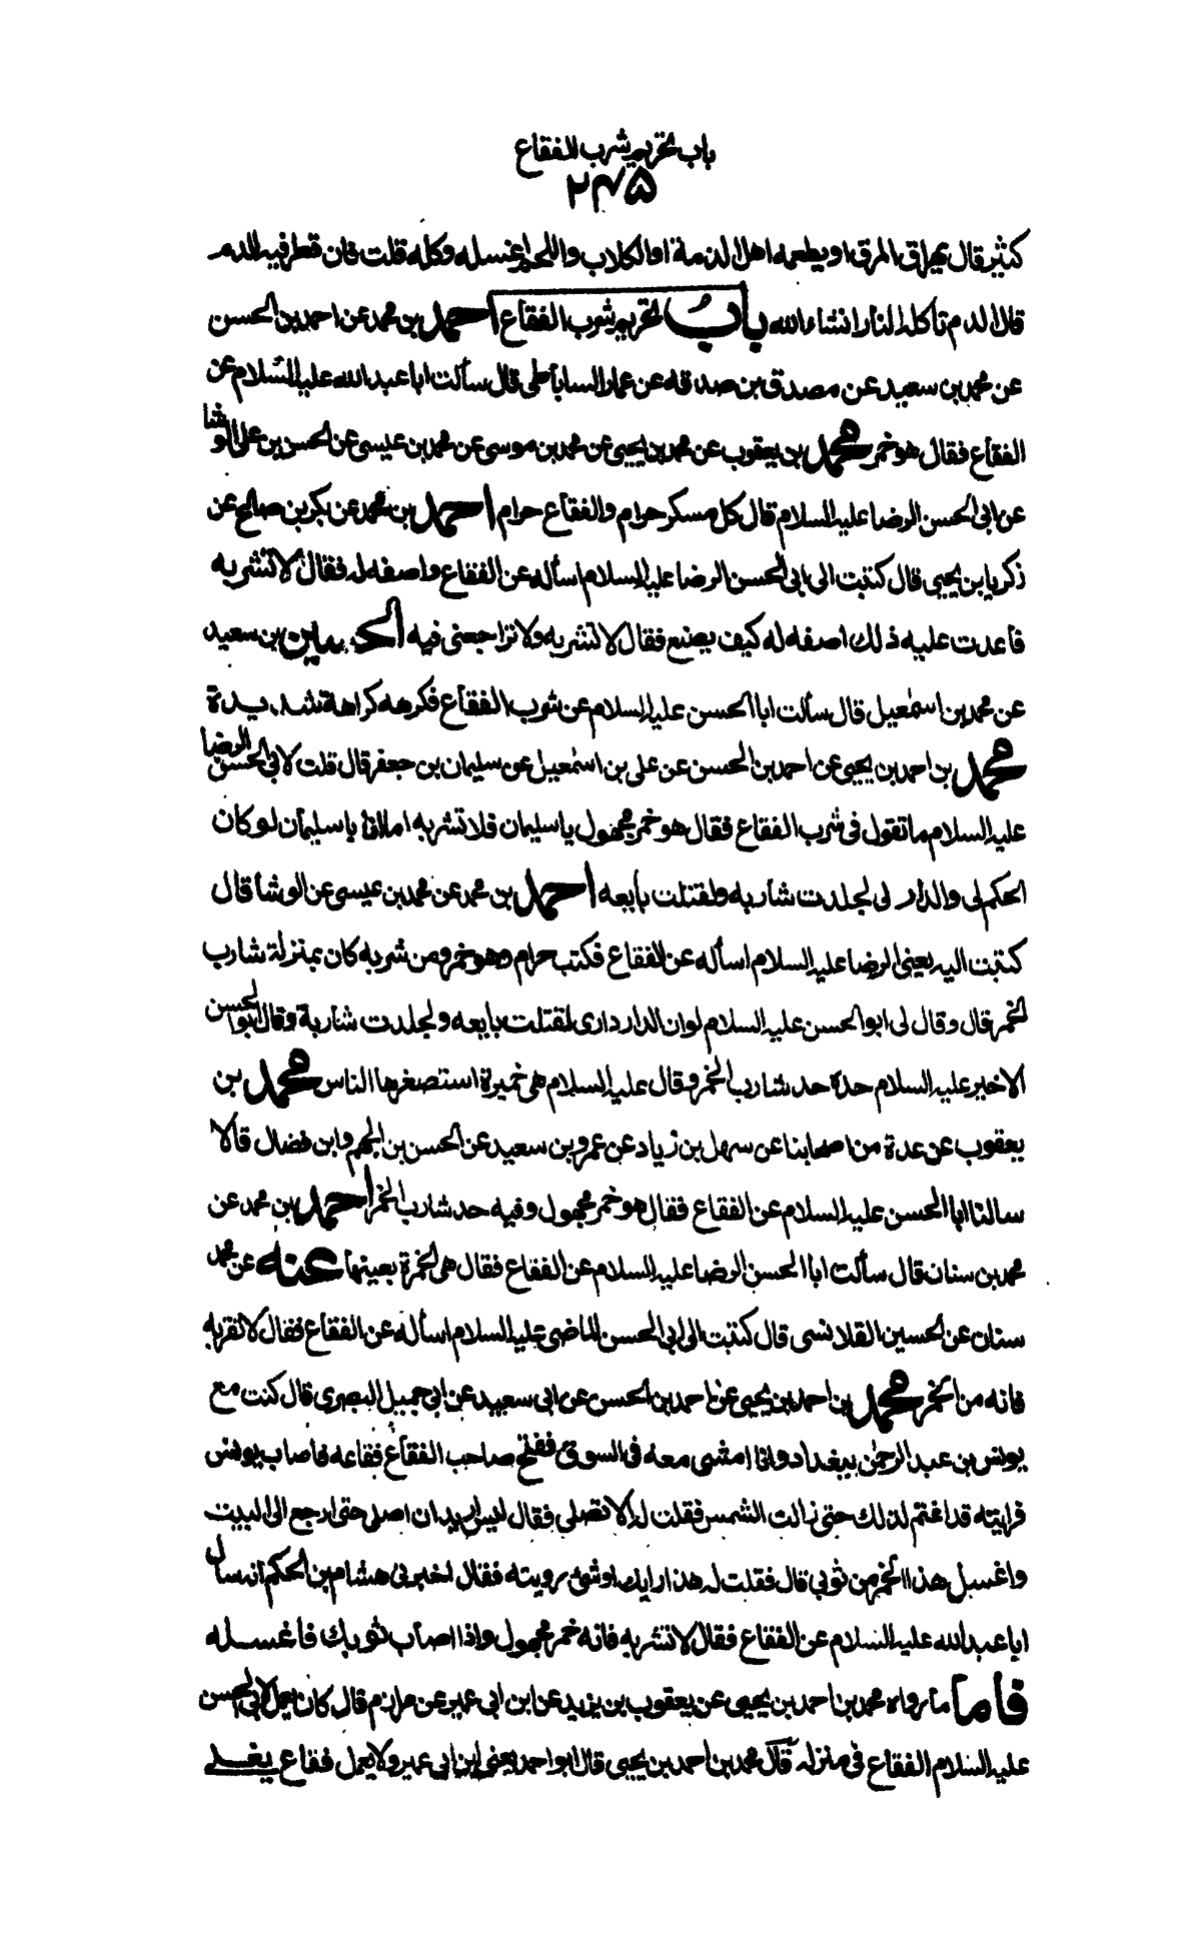 باب تحريم شرب الفقاع
۲۴۵
كثير قال يهراق المرق او يطعمه اهل الذمة او الكلاب واللحم اغسله وكله قلت فان قطر فيه الدم
قال الدم تاكله النار انشاء الله باب تحريم شرب الفقاع احمد بن محمد عن احمد بن الحسن
عن محمد بن سعيد عن مصدق بن صدقه عن عمار الساباطى قال سألت ابا عبد الله عليه السلام عن
الفقاع فقال هو خمر محمد بن يعقوب عن محمد بن يحيى عن محمد بن موسى عن محمد بن عيسى عن الحسن بن على الوشا
عن ابى الحسن الرضا عليه السلام قال كل مسكر حرام والفقاع حرام احمد بن محمد عن بكر بن صالح عن
ذكريا بن يحيى قال كتبت الى ابى الحسن الرضا عليه السلام اسأله عن الفقاع واصفه له فقال لا تشربه
فاعدت عليه ذلك اصفه له كيف يصنع فقال لا تشربه ولا تراجعنى فيه الحسين بن سعيد
عن محمد بن اسمعيل قال سألت ابا الحسن عليه السلام عن شرب الفقاع فكرهه كراهة شديدة
محمد بن احمد بن يحيى عن احمد بن الحسن عن على بن اسمعيل عن سليمان بن جعفر قال قلت لابى الحسن الرضا
عليه السلام ما تقول فى شرب الفقاع فقال هو خمر مجهول يا سليمان فلا تشربه اما انا يا سليمان لو كان
الحكم لى والدار لى لجلدت شاربه ولقتلت بايعه احمد بن محمد عن محمد بن عيسى عن الوشا قال
كتبت اليه يعنى الرضا عليه السلام اسأله عن الفقاع فكتب حرام وهو خمر ومن شربه كان بمنزلة شارب
الخمر قال وقال لى ابو الحسن عليه السلام لو ان الدار دارى لقتلت بايعه ولجلدت شاربة وقال ابو الحسن
الاخير عليه السلام حده حد شارب الخمر وقال عليه السلام هى خميرة استصغرها الناس محمد بن
يعقوب عن عدة من اصحابنا عن سهل بن زياد عن عمرو بن سعيد عن الحسن بن الجهم وابن فضال قالا
سالنا ابا الحسن عليه السلام عن الفقاع فقال هو خمر مجهول وفيه حد شارب الخمر احمد بن محمد عن
محمد بن سنان قال سألت ابا الحسن الرضا عليه السلام عن الفقاع فقال هى الخمرة بعينها عنه عن محمد
سنان عن الحسين القلانسى قال كتبت الى ابى الحسن الماضى عليه السلام اسأله عن الفقاع فقال لا تقربه
فانه من الخمر محمد بن احمد بن يحيى عن احمد بن الحسن عن ابى سعيد عن ابى جميل البصرى قال كنت مع
يونس بن عبد الرحمن ببغداد وانا امشى معه فى السوق ففتح صاحب الفقاع فقاعه فاصاب يونس
فرايته قد اغتم لذلك حتى زالت الشمس فقلت له الا تصلى فقال ليس اريد ان اصلى حتى ارجع الى البيت
واغسل هذا الخمر من ثوبى قال فقلت له هذا رايك او شئ رويته فقال اخبرنى هشام بن الحكم انه سأل
ابا عبد الله عليه السلام عن الفقاع فقال لا تشربه فانه خمر مجهول واذا اصاب ثوبك فاغسله
فاما ما رواه محمد بن احمد بن يحيى عن يعقوب بن يزيد عن ابن ابى عمير عن مرازم قال كان يعمل لابى الحسن
عليه السلام الفقاع فى منزله قال محمد بن احمد بن يحيى قال ابو احمد يعنى ابن ابى عمير ولا يعمل فقاع يغلى